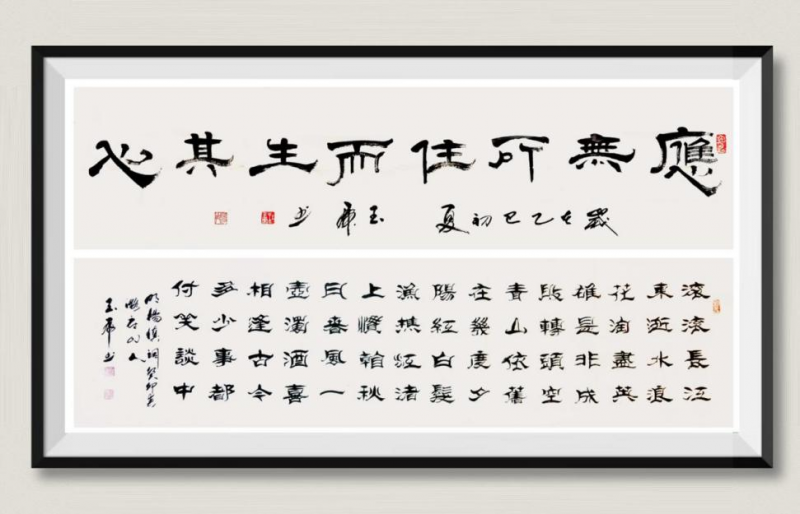 應無所住而生其心
歲在乙巳初夏
书
滾滾長江
東逝水浪
花淘盡英
雄是非成
敗轉頭空
青山依舊
在幾度夕
陽紅白髮
漁樵江渚
上慣看秋
月春風一
壺濁酒喜
相逢古今
多少事都
付笑談中
明楊慎詞癸卯春
山人
书